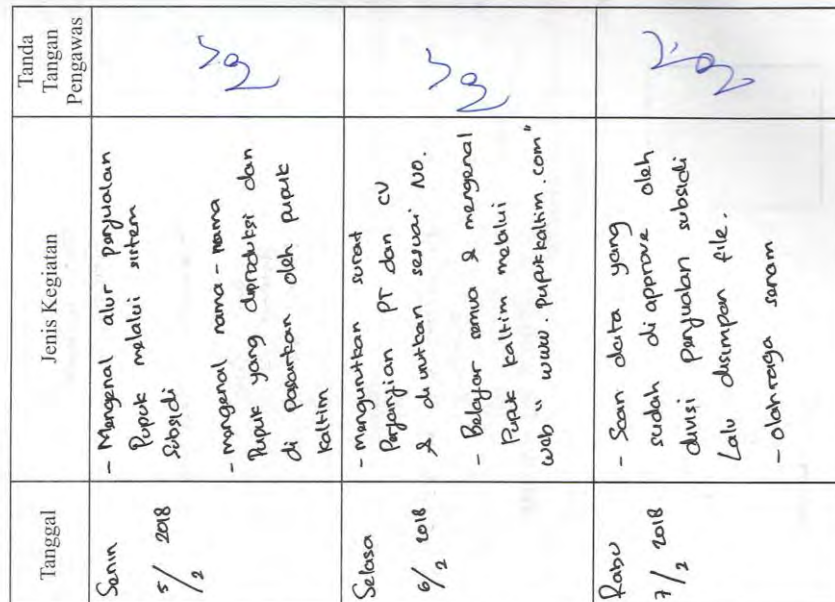 Tanggal
Jenis Kegiatan
Tanda
Tangan
Pengawas
Senin
5/2 2018
- Mengenal alur penjualan
Pupuk melalui sistem
Subsidi
- mengenal nama - nama
Pupuk yang diproduksi dan
di Pasarkan oleh pupuk
kaltim
Selasa
6/2 2018
- mengurutkan surat
Perjanjian PT dan CV
& diurutkan sesuai NO.
- Belajar semua & mengenal
Pupuk kaltim melalui
web " www.pupukkaltim.com"
Rabu
7/2 2018
- Scan data yang
sudah di approve oleh
divisi penjualan subsidi
Lalu disimpan file.
- olahraga senam